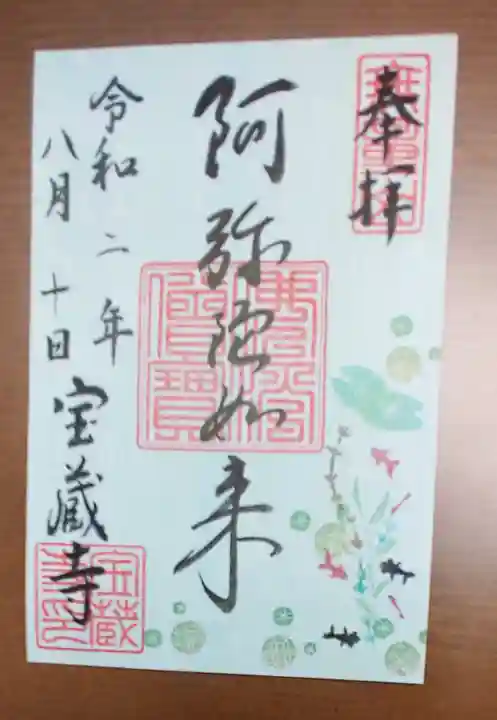 奉拝
阿弥陀如来
令和二年
八月十日
宝蔵寺
佛法僧寳